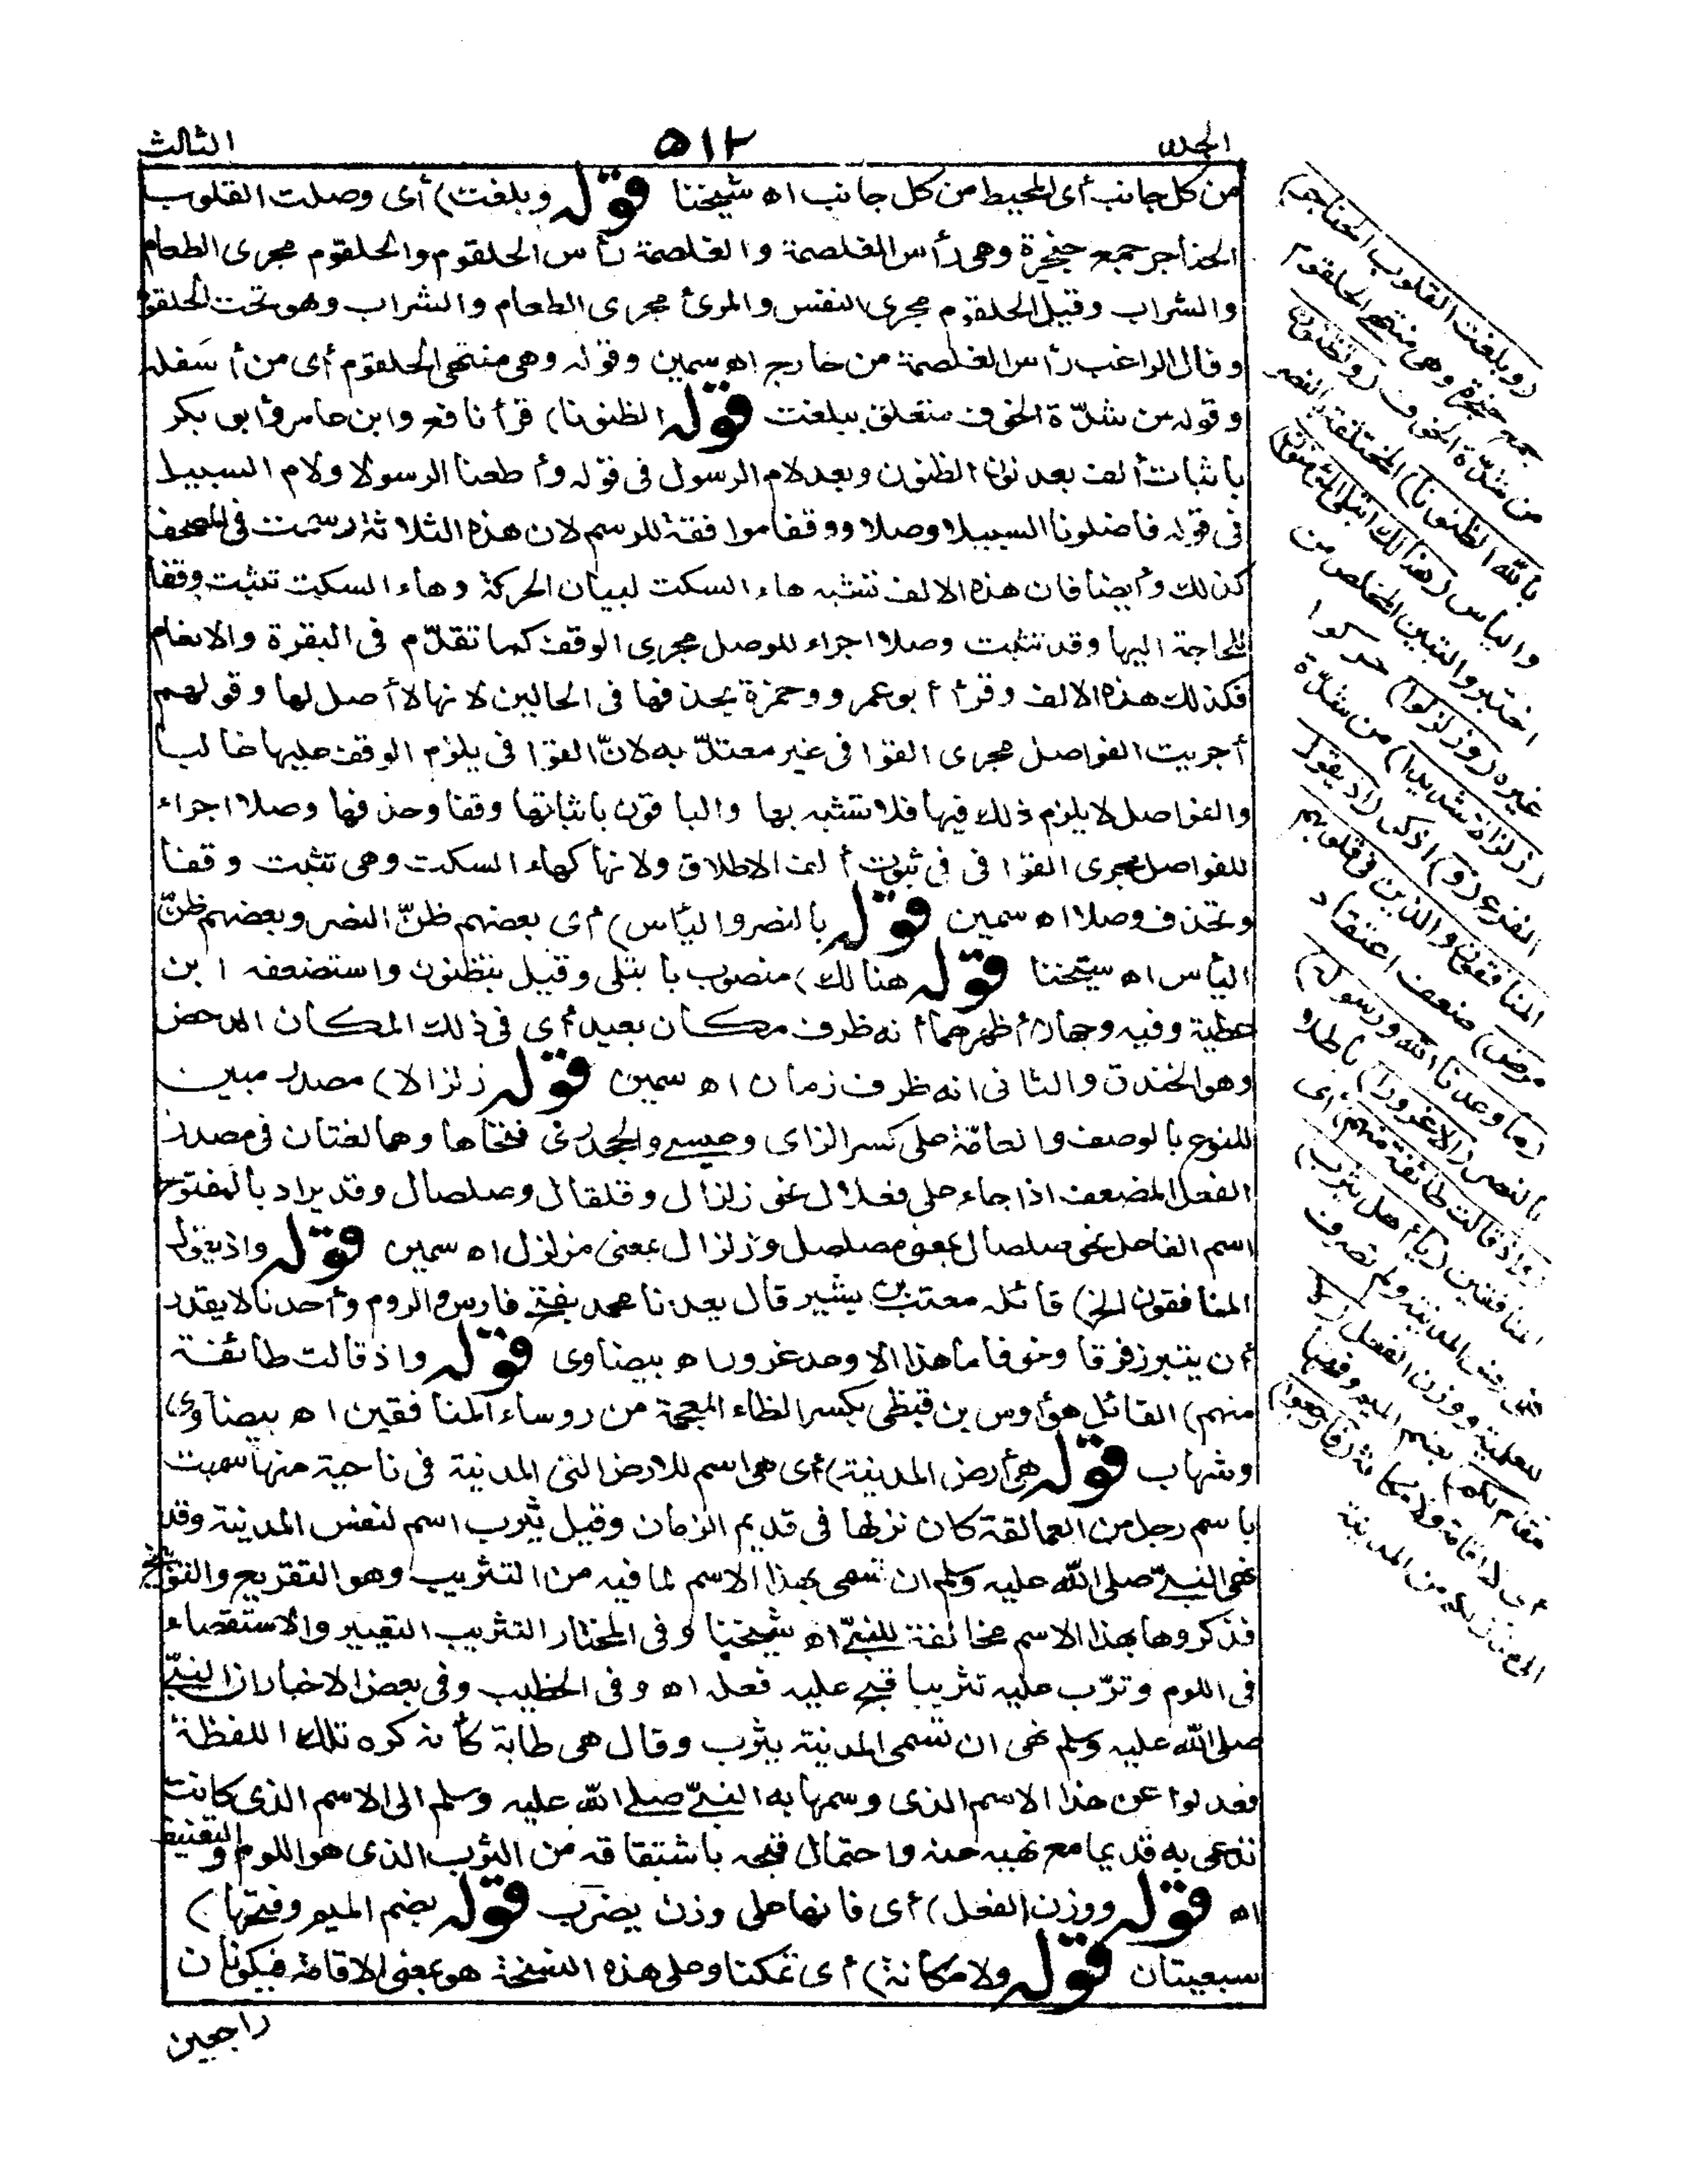 الجلد
٥١٢
الثالث
من كل جانب أى المحيط من كل جانب اه شيخنا قوله وبلغت) أى وصلت القلوب
الحناجر جمع حنجرة وهى رأس الغلصمة والغلصمة رأس الحلقوم والحلقوم مجرى الطعام
والشراب وقيل الحلقوم مجرى النفس والمرئ مجرى الطعام والشراب وهو تحت الحلقوم
وقال الراغب رأس الغلصمة من خارج اه سمين وقوله وهى منتهى الحلقوم أى من أسفله
وقوله من شدّة الخوف متعلق ببلغت قوله الظنونا) قرأ نافع وابن عامر وأبو بكر
باثبات ألف بعد نون الظنون وبعد لام الرسول فى قوله وأطعنا الرسولا ولام السبيل
فى قوله فاضلونا السبيلا وصلا ووقفا موافقة للرسم لان هذه الثلاثة رسمت فى المصحف
كذلك وأيضا فان هذه الالف تشبه هاء السكت لبيان الحركة وهاء السكت تثبت وقفا
للحاجة اليها وقد تثبت وصلا اجراء للوصل مجرى الوقف كما تقدّم فى البقرة والانعام
فكذلك هذه الالف وقرأ أبو عمرو وحمزة بحذفها فى الحالين لانها لا أصل لها وقولهم
أجريت الفواصل مجرى القوافى غير معتدّ به لانّ القوافى يلزم الوقف عليها غالبا
والفواصل لا يلزم ذلك فيها فلا تشبه بها والباقون باثباتها وقفا وحذفها وصلا اجراء
للفواصل مجرى القوافى فى ثبوت ألف الاطلاق ولانها كهاء السكت وهى تثبت وقفا
وتحذف وصلا اه سمين قوله بالنصر واليأس) أى بعضهم ظنّ النصر وبعضهم ظنّ
اليأس اه شيخنا قوله هنالك) منصوب بابتلى وقيل بتظنون واستضعفه ابن
عطية وفيه وجهان أظهرهما أنه ظرف مكان بعيد أى فى ذلك المكان الدحض
وهو الخندق والثانى انه ظرف زمان اه سمين قوله زلزالا) مصدر مبين
للنوع بالوصف والعامّة على كسر الزاى وعيسى والجحدرى فتحاها وهما لغتان فى مصدر
الفعل المضعف اذا جاء على فعلال نحو زلزال وقلقال وصلصال وقد يراد بالمفتوح
اسم الفاعل نحو صلصال بمعنى مصلصل وزلزال بمعنى مزلزل اه سمين قوله واذ يقول
المنافقون الخ) قائله معتب بن بشير قال يعدنا محمد بفتح فارس والروم وأحدنا لا يقدر
أن يتبرز فرقا وخوفا ما هذا الا وعد غرور اه بيضاوى قوله واذ قالت طائفة
منهم) القائل هو أوس بن قيظى بكسر الظاء المعجمة من روساء المنافقين اه بيضاوى
وشهاب قوله هى أرض المدينة) أى هى اسم للارض التى المدينة فى ناحية منها سميت
باسم رجل من العمالقة كان نزلها فى قديم الزمان وقيل يثرب اسم لنفس المدينة وقد
نهى النبىّ صلى الله عليه وسلم ان تسمى بهذا الاسم لما فيه من التثريب وهو التقريع والتوبيخ
فذكروها بهذا الاسم مخالفة للنبىّ اه شيخنا وفى المختار التثريب التعيير والاستقصاء
فى اللوم وثرّب عليه تثريبا قبح عليه فعله اه وفى الخطيب وفى بعض الاخبار ان النبىّ
صلى الله عليه وسلم نهى ان تسمى المدينة يثرب وقال هى طابة كأنه كره تلك اللفظة
فعدلوا عن هذا الاسم الذى وسمها به النبىّ صلى الله عليه وسلم الى الاسم الذى كانت
تدعى به قديما مع نهيه عنه واحتمال قبحه باشتقاقه من الثرب الذى هو اللوم والتعنيف
اه قوله ووزن الفعل) أى فانها على وزن يضرب قوله بضم الميم وفتحها)
سبعيتان قوله ولا مكانة) أى تمكنا وعلى هذه النسخة هو بمعنى الاقامة فيكونان
راجعين
(وبلغت القلوب الحناجر)
جمع حنجرة وهى منتهى الحلقوم
من شدّة الخوف (وتظنون
بالله الظنونا) المختلفة بالنصر
واليأس (هنالك ابتلى المؤمنون)
اختبروا ليتبين المخلص من
غيره (وزلزلوا) حركوا
(زلزالا شديدا) من شدّة
الفزع (و) اذكر (اذ يقول
المنافقون والذين فى قلوبهم
مرض) ضعف اعتقاد
(ما وعدنا الله ورسوله)
بالنصر (الا غرورا) باطلا
(واذ قالت طائفة منهم) أى
المنافقين (يا أهل يثرب)
هى أرض المدينة ولم تصرف
للعلمية ووزن الفعل (لا
مقام لكم) بضم الميم وفتحها
أى لا اقامة ولا مكانة (فارجعوا)
الى منازلكم من المدينة